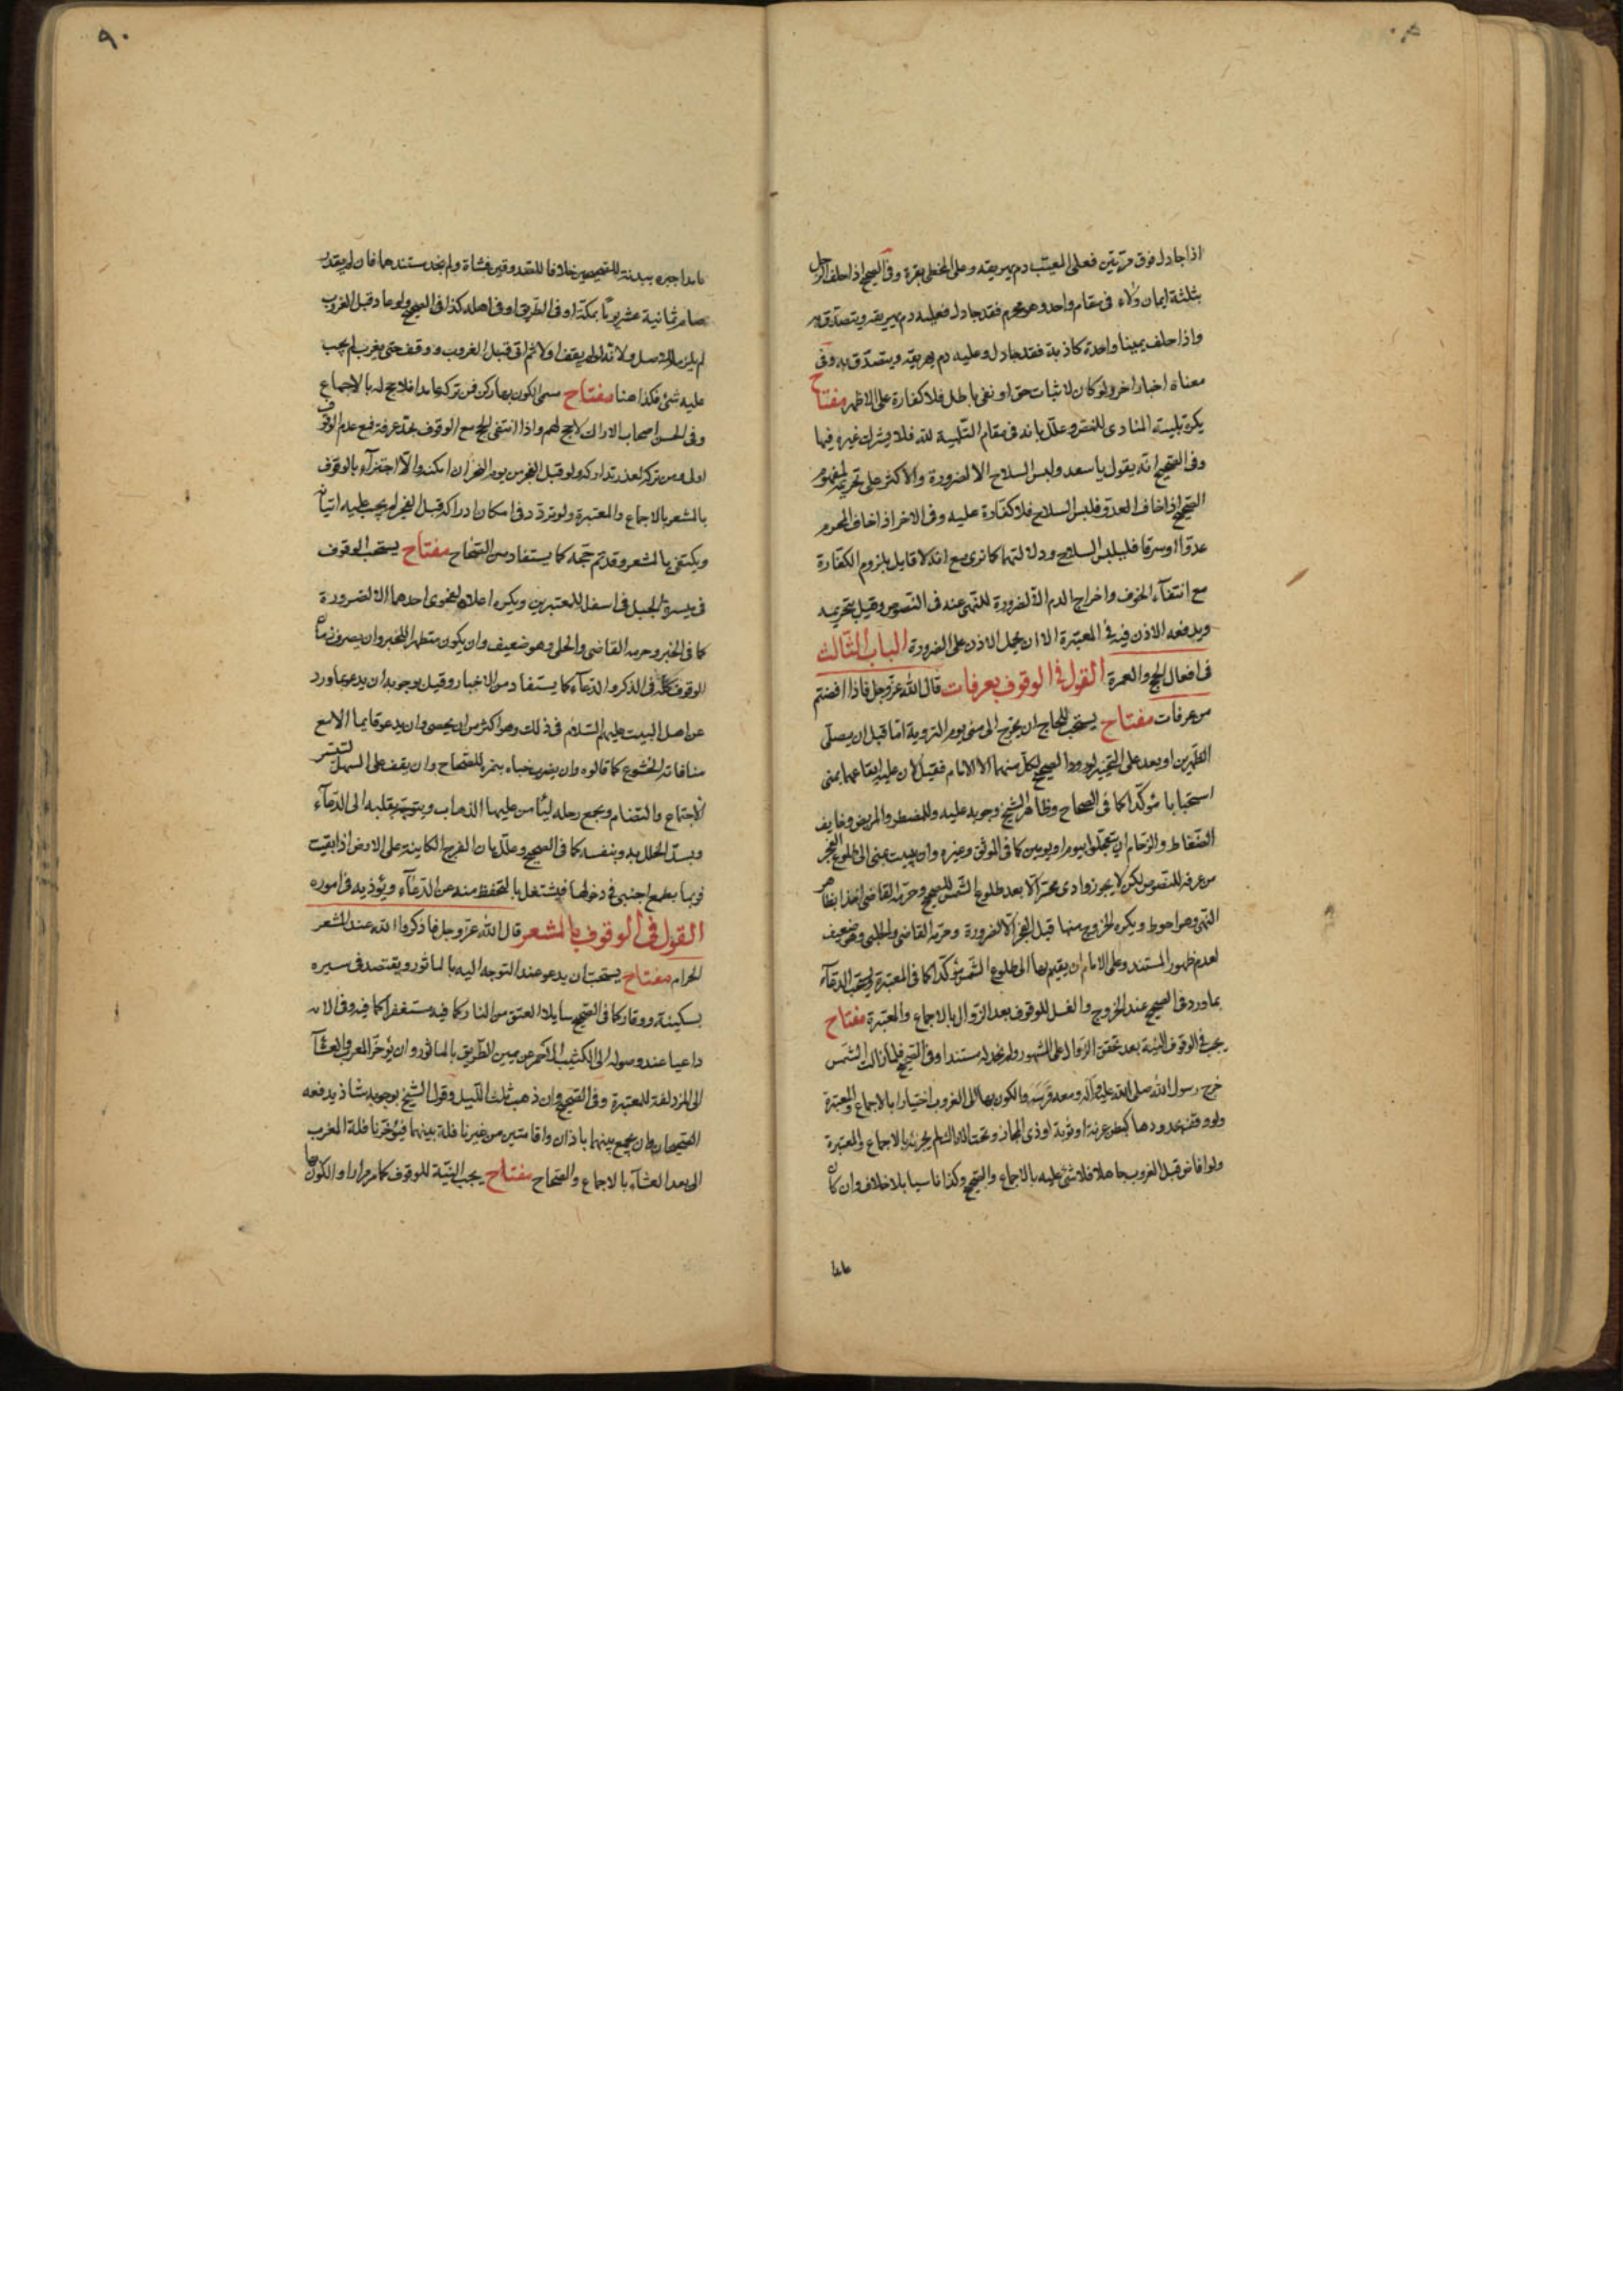 اذا جادل فوق مرتين فعلى المصيب دم يهريقه وعلى المخطى بقرة وفى الصحيح اذا حلف الرجل
بثلثة ايمان ولاء فى مقام واحد وهو محرم فقد جادل فعليه دم يهريقه ويتصدق به
واذا حلف يمينا واحدة كاذبة فقد جادل وعليه دم يهريقه ويتصدق به وفى
معناه اخبار اخر ولو كان لاثبات حق او نفى باطل فلا كفارة على الاظهر مفتاح
يكره تلبيته المنادى للنص وعلل بانه فى مقام التلبية لله فلا يشرك غيره فيها
وفى الصحيح انه يقول يا سعد ولبس السلاح الا لضرورة والاكثر على تحريمه لمفهوم
الصحيح اذا خاف العدو فلبس السلاح فلا كفارة عليه وفى الاخر اذا خاف المحرم
عدوا او سرقا فليلبس السلاح ودلالتهما كما ترى مع انه لا قايل بلزوم الكفارة
مع انتفاء الخوف واخراج الدم الا لضرورة للنهى عنه فى النصوص وقيل بتحريمه
ويدفعه الاذن فيه فى المعتبرة الا ان يحمل الاذن على الضرورة الباب الثالث
فى افعال الحج والعمرة القول فى الوقوف بعرفات قال الله عز وجل فاذا افضتم
من عرفات مفتاح يستحب للحاج ان يخرج الى منى يوم التروية اما قبل ان يصلى
الظهرين او بعد على التخيير لورود الصحيح لكل منهما الا الامام فقيل لان عليه ايقاعهما بمنى
استحبابا مؤكدا كما فى الصحاح وظاهر الشيخ وجوبه عليه وللمضطر والمريض وخايف
الضغاط والزحام ان يتعجلوا بيوم او يومين كما فى الموثق وغيره وان يبيت بمنى الى طلوع الفجر
من عرفة للنصوص لكن لا يجوز وادى محسر الا بعد طلوع الشمس للصحيح وحرمه القاضى اخذا بظاهر
النهى وهو احوط ويكره الخروج منها قبل الفجر الا لضرورة وحرمه القاضى والحلبى وهو ضعيف
لعدم ظهور المستند وعلى الامام ان يقيم بها الى طلوع الشمس مؤكدا كما فى المعتبرة ويستحب الدعاء
بما ورد فى الصحيح عند الخروج والغسل للوقوف بعد الزوال بالاجماع والمعتبرة مفتاح
يجب فى الوقوف النية بعد تحقق الزوال على المشهور ولم نجد له مستندا وفى الصحيح فلما زالت الشمس
خرج رسول الله صلى الله عليه وآله ومعه قريش والكون بها الى الغروب اختيارا بالاجماع والمعتبرة
ولو وقف بحدودها كبطن عرنة او ثوية او ذى المجاز وتحت الاراك لم يجزئه بالاجماع والمعتبرة
ولو افاض قبل الغروب جاهلا فلا شئ عليه بالاجماع والصحيح وكذا ناسيا بلا خلاف وان كان
عامدا
٩٠
عامدا جبره ببدنة للصحيحين خلافا للصدوقين فشاة ولم نجد مستندهما فان لم يقدر
صام ثمانية عشر يوما بمكة او فى الطريق او فى اهله كذا فى الصحيح ولو عاد قبل الغروب
لم يلزمه للاصل ولانه لو لم يقف اولا ثم اتى قبل الغروب ووقف حتى يغرب لم يجب
عليه شئ فكذا هنا مفتاح مسمى الكون بها ركن فمن تركه عامدا فلا حج له بالاجماع
وفى الحسن اصحاب الاراك لا حج لهم واذا انتفى الحج مع الوقوف بحد عرفة فمع عدم الوقوف
اولى ومن تركه لعذر تداركه ولو قبل الفجر من يوم النحر ان امكنه والا اجتزأ بالوقوف
بالمشعر بالاجماع والمعتبرة ولو تردد فى امكان ادراكه قبل الفجر لم يجب عليه اتيانه
ويكتفى بالمشعر وقد تم حجه كما يستفاد من الصحاح مفتاح يستحب الوقوف
فى ميسرة الجبل فى اسفله للمعتبرين ويكره اعلاه لفحوى احدهما الا لضرورة
كما فى الخبر وحرمه القاضى والحلى وهو ضعيف وان يكون متطهرا للخبر وان يصرف زمان
الوقوف كله فى الذكر والدعاء كما يستفاد من الاخبار وقيل بوجوبه وان يدعو بما ورد
عن اهل البيت عليهم السلام فى ذلك وهو اكثر من ان يحصى وان يدعو قايما الا مع
منافاته الخشوع كما قالوه وان يضرب خباءه بنمرة للصحاح وان يقف على السهل لتيسر
الاجتماع والتضام ويجمع رحله ليأمن عليها الذهاب ويتوجه بقلبه الى الدعاء
ويسد الخلل به وبنفسه كما فى الصحيح وعلل بان الفرج الكاينة على الارض اذا بقيت
فربما يطمع اجنبى فى دخولها فيشتغل بالتحفظ منه عن الدعاء ويؤذيه فى اموره
القول فى الوقوف بالمشعر قال الله عز وجل فاذكروا الله عند المشعر
الحرام مفتاح يستحب ان يدعو عند التوجه اليه بالماثور ويقتصد فى سيره
بسكينة ووقار كما فى الصحيح سايلا العتق من النار كما فيه مستغفرا كما فيه وفى الاية
داعيا عند وصوله الى الكثيب الاحمر عن يمين الطريق بالماثور وان يؤخر المغرب والعشاء
الى المزدلفة للمعتبرة وفى الصحيح وان ذهب ثلث الليل وقول الشيخ بوجوبه شاذ يدفعه
الصحيحان وان يجمع بينهما باذان واقامتين من غير نافلة بينهما فيؤخر نافلة المغرب
الى بعد العشاء بالاجماع والصحاح مفتاح يجب النية للوقوف كما مر مرارا والكون بها